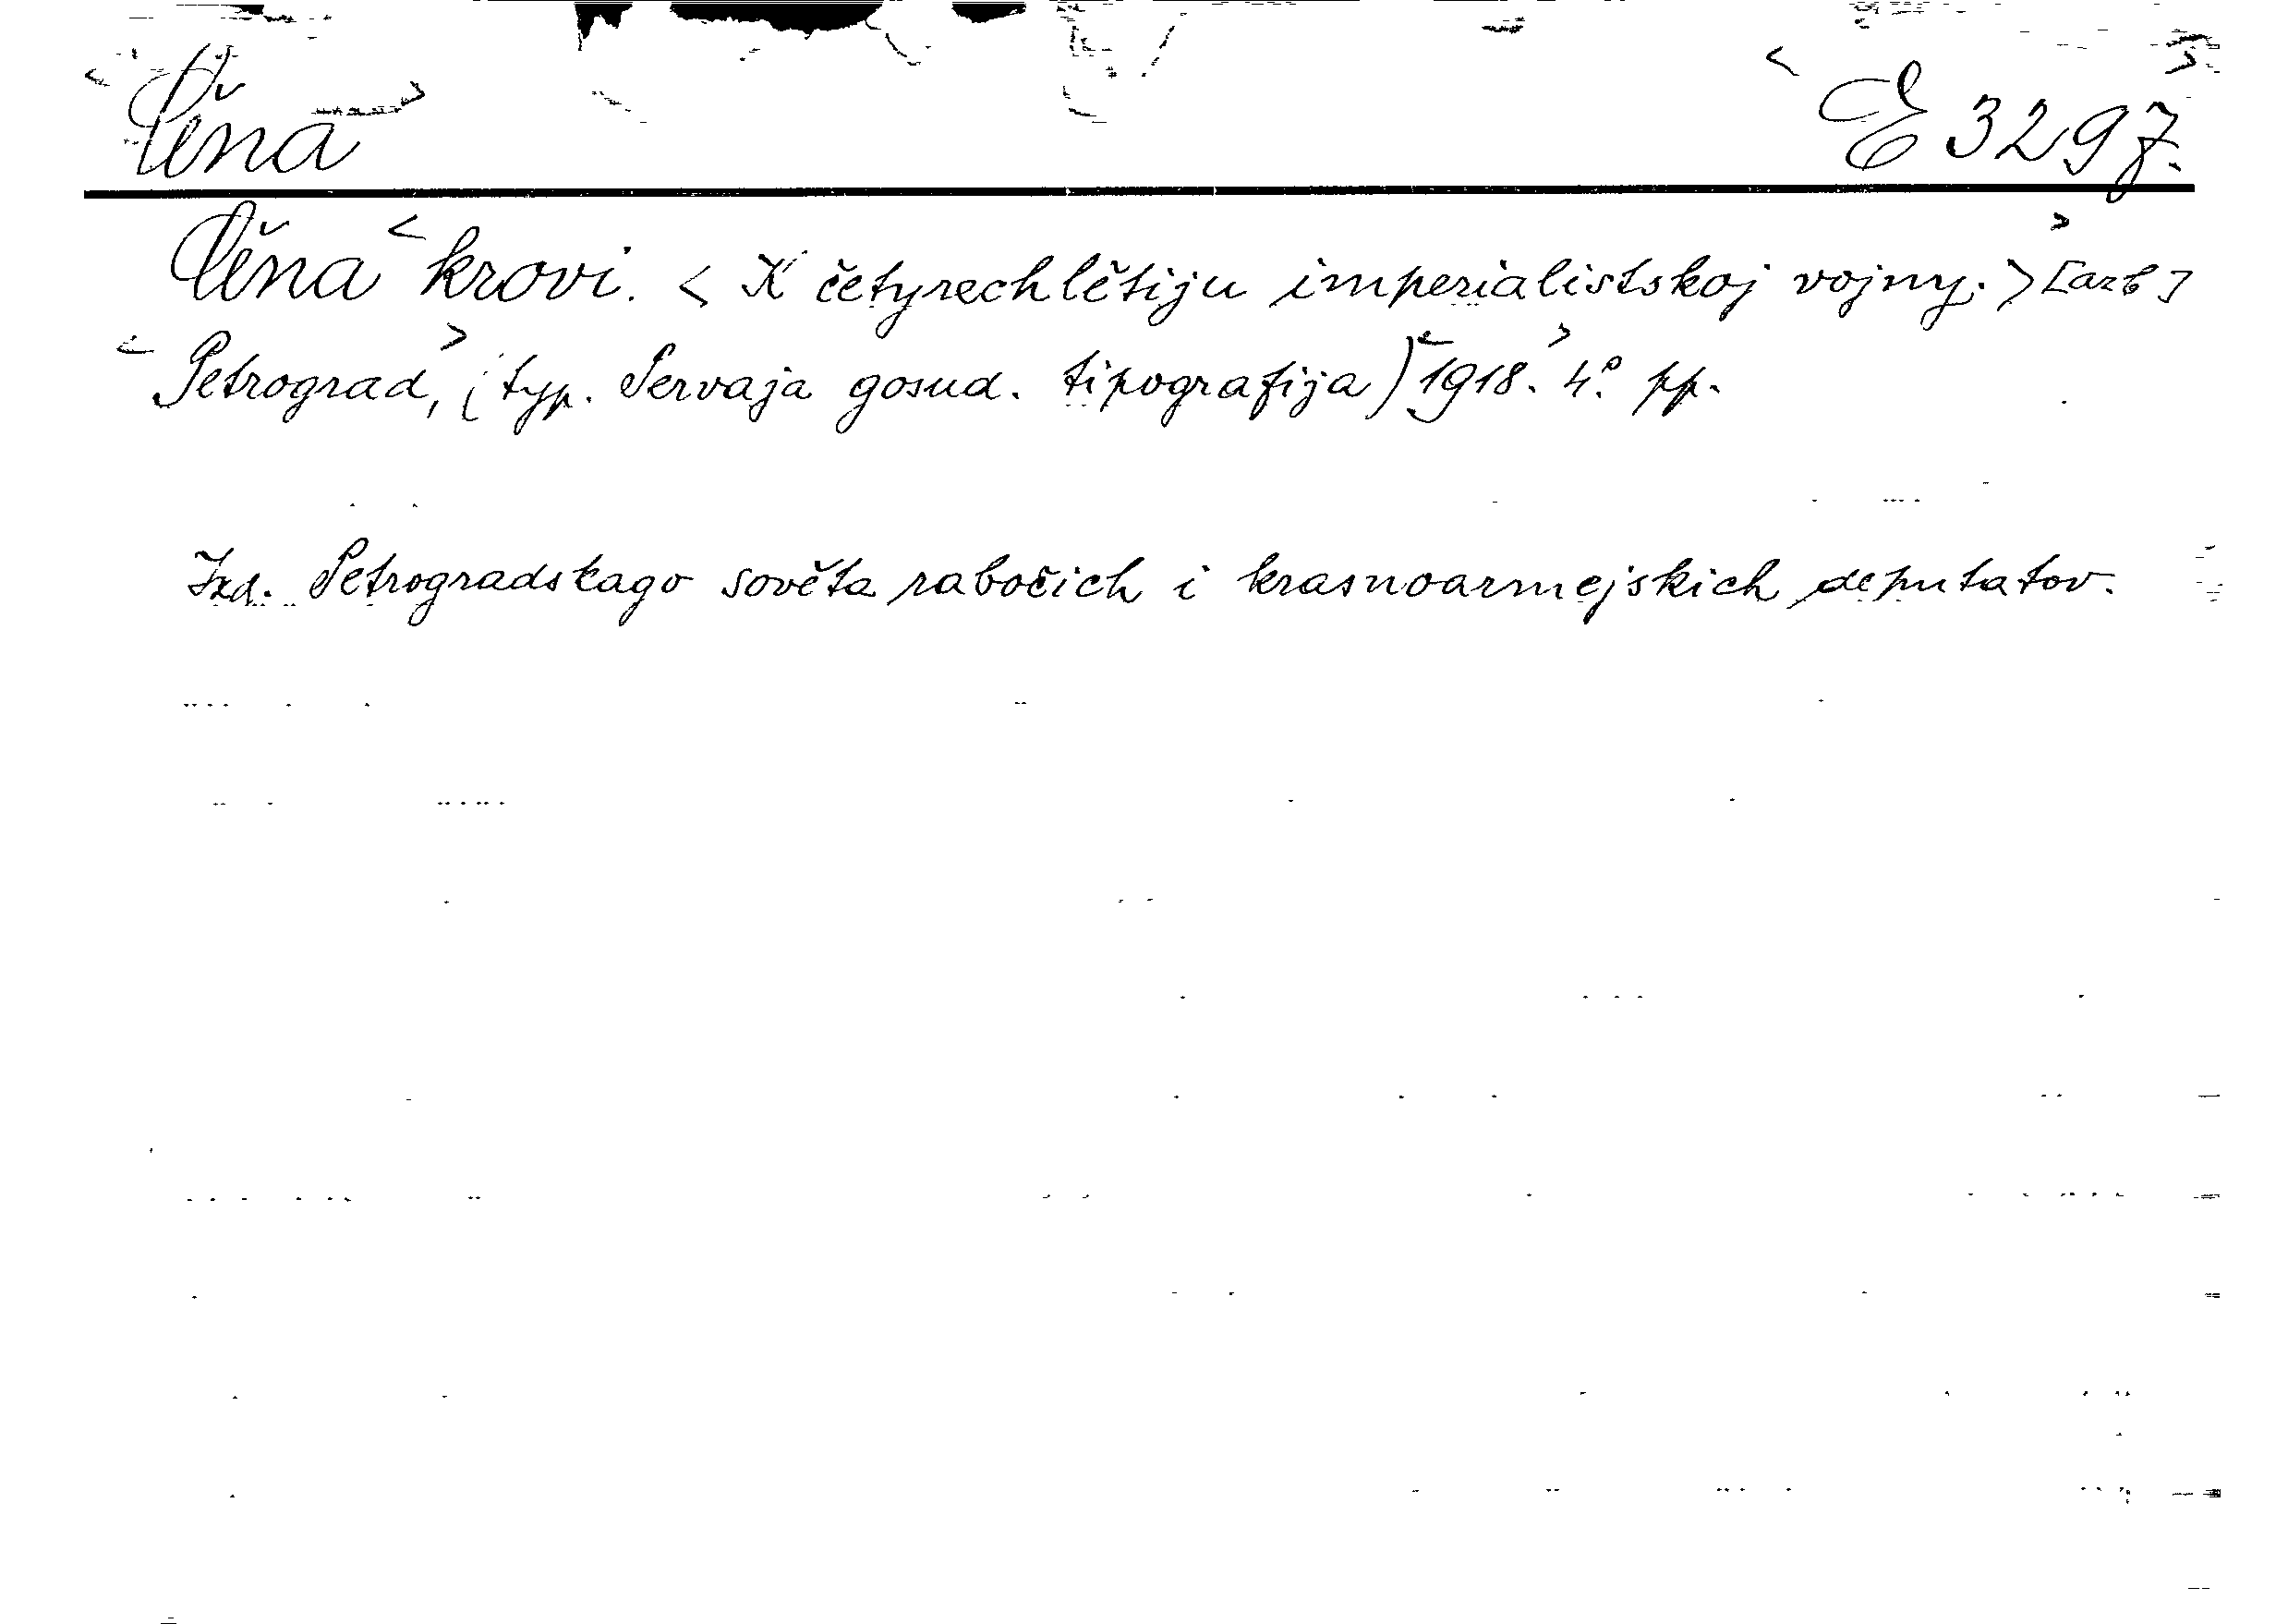 Cěna E 3297.
Cěna krovi. < K četyrechlětiju imperialistskoj vojny. >
Petrograd, (typ. Pervaja gosud. tipografija) 1918. 4.° pp.
Izd. Petrogradskago sověta rabočich i krasnoarmejskich deputatov.